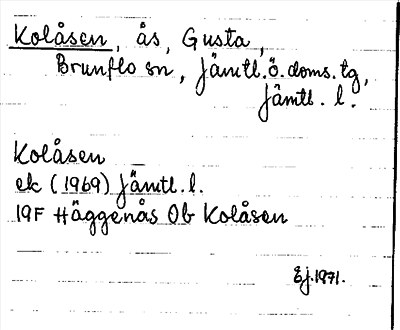 Kolåsen, ås, Gusta,
Brunflo sn, Jämtl.ö.doms.tg,
Jämtl. l.
Kolåsen
ek (1969) Jämtl.l.
19F Häggenås Ob Kolåsen
Ej.1971.